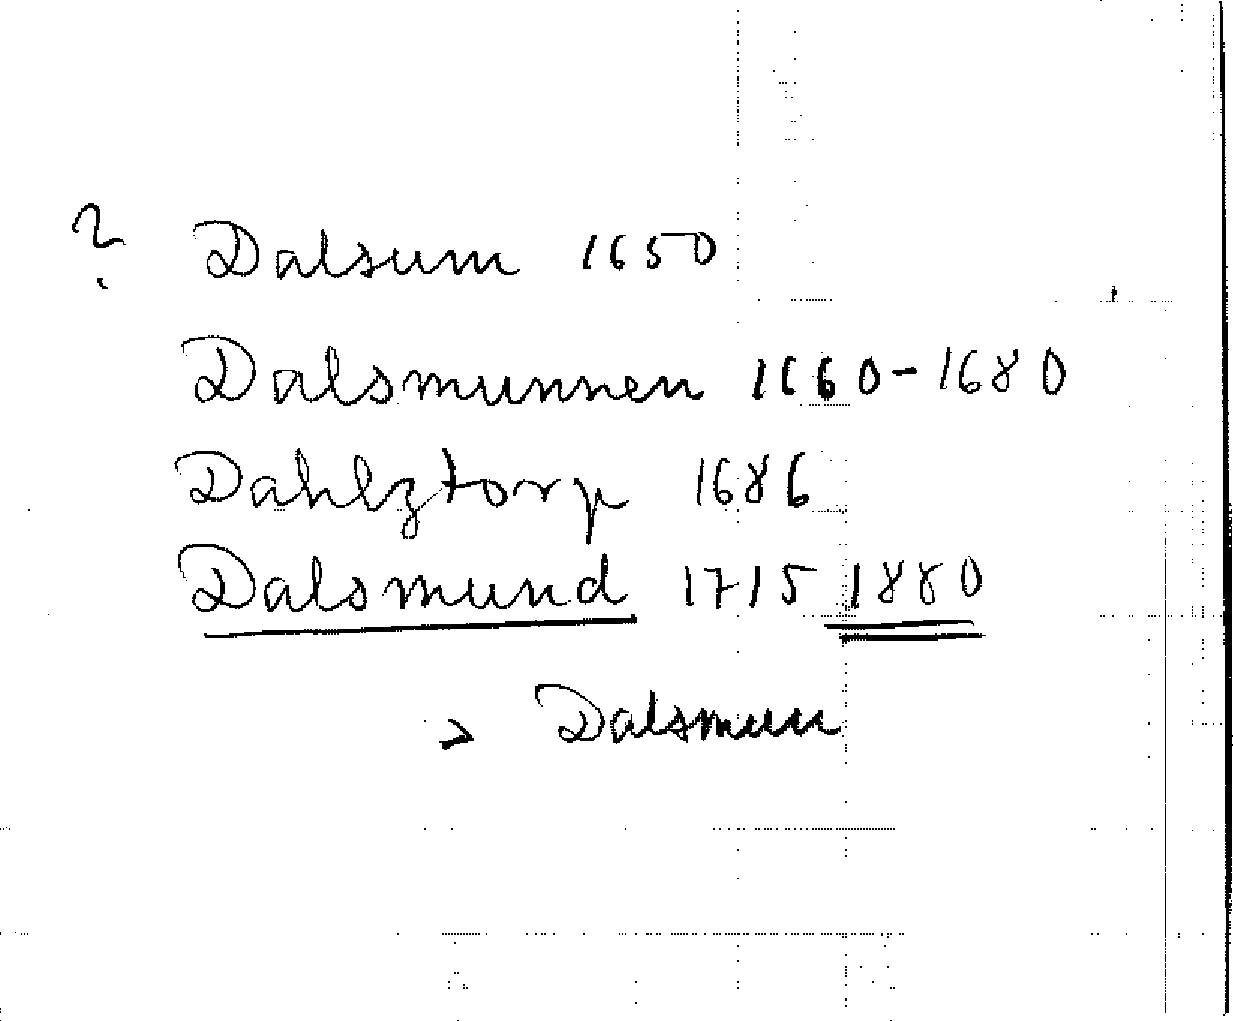 ? Dalsum 1650
Dalsmunnen 1660-1680
Dahlztorp 1686
Dalsmund 1715 1880
> Dalsmun